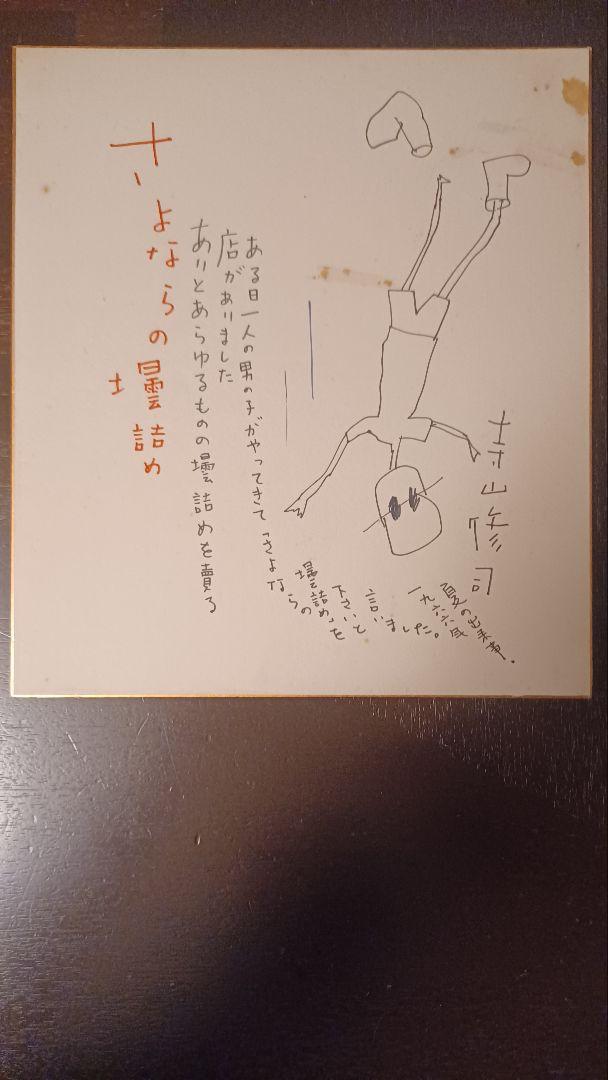 さよならの壜詰め
ありとあらゆるものの壜詰めを賣る
店がありました
ある日一人の男の子がやってきて「さよならの
壜詰め」を
下さいと
言いました。
一九六六年
夏の出来事.
寺山修司